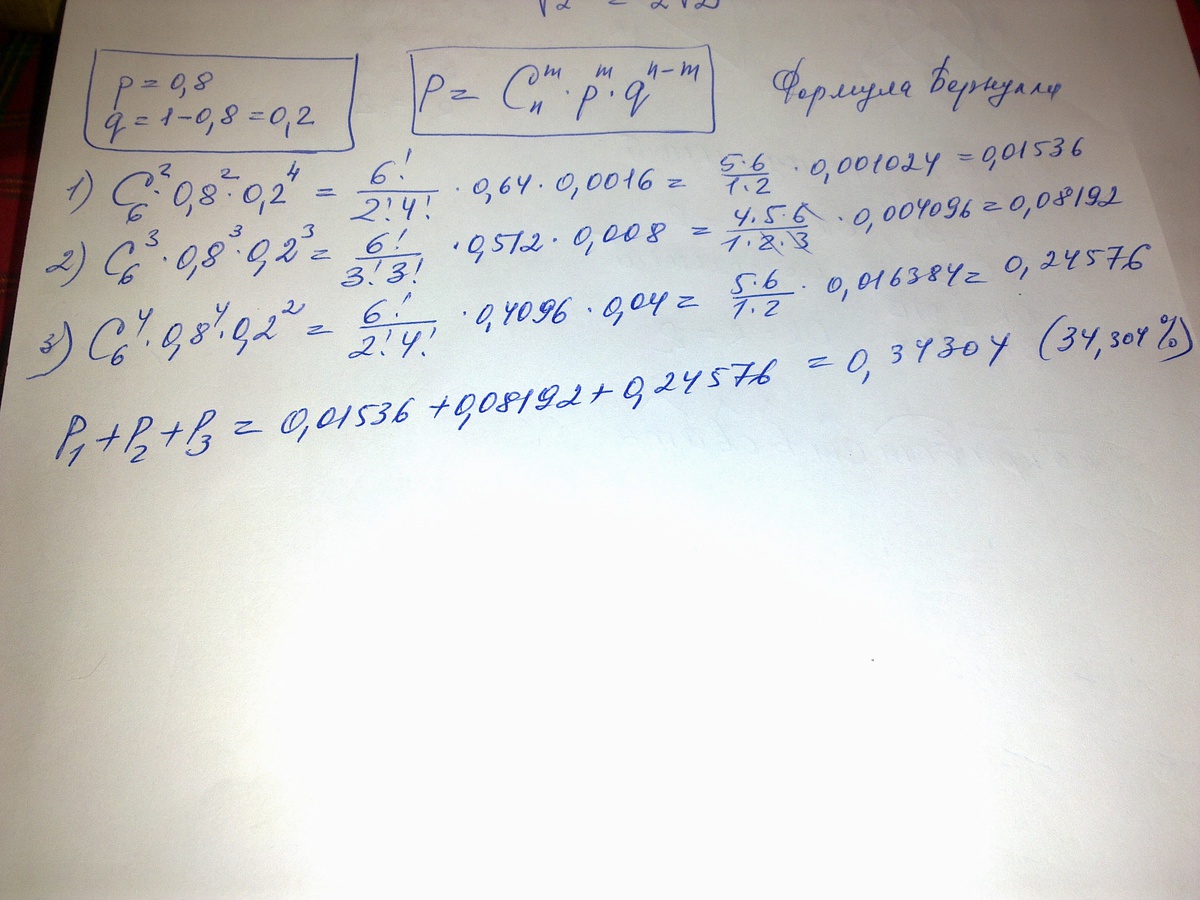 √2 = 2√2
p = 0,8
q = 1 - 0,8 = 0,2
P = C_n^m · p^m · q^{n-m} Формула Бернулли
1) C_6^2 · 0,8^2 · 0,2^4 = 6!/(2!4!) · 0,64 · 0,0016 = (5·6)/(1·2) · 0,001024 = 0,01536
2) C_6^3 · 0,8^3 · 0,2^3 = 6!/(3!3!) · 0,512 · 0,008 = (4·5·6)/(1·2·3) · 0,004096 = 0,08192
3) C_6^4 · 0,8^4 · 0,2^2 = 6!/(2!4!) · 0,4096 · 0,04 = (5·6)/(1·2) · 0,016384 = 0,24576
P_1 + P_2 + P_3 = 0,01536 + 0,08192 + 0,24576 = 0,34304 (34,304%)